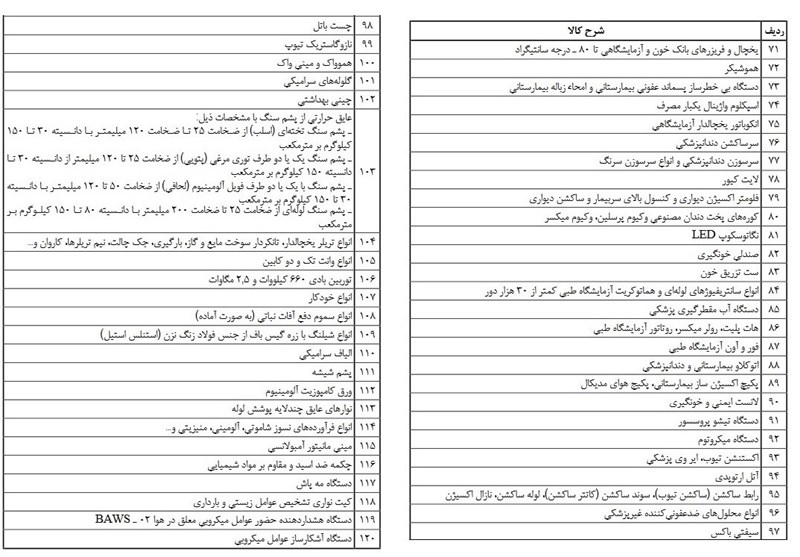 ردیف شرح کالا
۷۱ یخچال و فریزرهای بانک خون و آزمایشگاهی تا ۸۰ ـ درجه سانتیگراد
۷۲ هموشیکر
۷۳ دستگاه بی خطرساز پسماند عفونی بیمارستانی و امحاء زباله بیمارستانی
۷۴ اسپکلوم واژینال یکبار مصرف
۷۵ انکوباتور یخچالدار آزمایشگاهی
۷۶ سرساکشن دندانپزشکی
۷۷ سرسوزن دندانپزشکی و انواع سرسوزن سرنگ
۷۸ لایت کیور
۷۹ فلومتر اکسیژن دیواری و کنسول بالای سربیمار و ساکشن دیواری
۸۰ کوره‌های پخت دندان مصنوعی وکیوم پرسلین، وکیوم میکسر
۸۱ نگاتوسکوپ LED
۸۲ صندلی خونگیری
۸۳ ست تزریق خون
۸۴ انواع سانتریفیوژهای لوله‌ای و هماتوکریت آزمایشگاه طبی کمتر از ۳۰ هزار دور
۸۵ دستگاه آب مقطرگیری پزشکی
۸۶ هات پلیت، رولر میکسر، روتاتور آزمایشگاه طبی
۸۷ فور و آون آزمایشگاه طبی
۸۸ اتوکلاو بیمارستانی و دندانپزشکی
۸۹ پکیج اکسیژن ساز بیمارستانی، پکیج هوای مدیکال
۹۰ لانست ایمنی و خونگیری
۹۱ دستگاه تیشو پروسسور
۹۲ دستگاه میکروتوم
۹۳ اکستنشن تیوب، ایر وی پزشکی
۹۴ آتل ارتوپدی
۹۵ رابط ساکشن (ساکشن تیوب)، سوند ساکشن (کانتر ساکشن)، لوله ساکشن، نازال اکسیژن
۹۶ انواع محلول‌های ضدعفونی‌کننده غیرپزشکی
۹۷ سیفتی باکس
۹۸ چست باتل
۹۹ نازوگاستریک تیوپ
۱۰۰ هموواک و مینی واک
۱۰۱ گلوله‌های سرامیکی
۱۰۲ چینی بهداشتی
عایق حرارتی از پشم سنگ با مشخصات ذیل:
ـ پشم سنگ تخته‌ای (اسلب) از ضخامت ۲۵ تا ضخامت ۱۲۰ میلیمتر با دانسیته ۳۰ تا ۱۵۰
کیلوگرم بر مترمکعب
ـ پشم سنگ یک یا دو طرف توری مرغی (پتویی) از ضخامت ۲۵ تا ۱۲۰ میلیمتر از دانسیته ۳۰ تا
۱۰۳ دانسیته ۱۵۰ کیلوگرم بر مترمکعب
ـ پشم سنگ با یک یا دو طرف فویل آلومینیوم (لحافی) از ضخامت ۵۰ تا ۱۲۰ میلیمتر با دانسیته
۳۰ تا ۱۵۰ کیلوگرم بر مترمکعب
ـ پشم سنگ لوله‌ای از ضخامت ۲۵ تا ضخامت ۲۰۰ میلیمتر با دانسیته ۸۰ تا ۱۵۰ کیلوگرم بر
مترمکعب
۱۰۴ انواع تریلر یخچالدار، تانکردار سوخت مایع و گاز، بارگیری، جک چالت، نیم تریلرها، کاروان و...
۱۰۵ انواع وانت تک و دو کابین
۱۰۶ توربین بادی ۶۶۰ کیلووات و ۲,۵ مگاوات
۱۰۷ انواع خودکار
۱۰۸ انواع سموم دفع آفات نباتی (به صورت آماده)
۱۰۹ انواع شیلنگ با زره گیس باف از جنس فولاد زنگ نزن (استنلس استیل)
۱۱۰ الیاف سرامیکی
۱۱۱ پشم شیشه
۱۱۲ ورق کامپوزیت آلومینیوم
۱۱۳ نوارهای عایق چندلایه پوشش لوله
۱۱۴ انواع فرآورده‌های نسوز شاموتی، آلومینی، منیزیتی و...
۱۱۵ مینی مانیتور آمبولانسی
۱۱۶ چکمه ضد اسید و مقاوم بر مواد شیمیایی
۱۱۷ دستگاه مه پاش
۱۱۸ کیت نواری تشخیص عوامل زیستی و بارداری
۱۱۹ دستگاه هشداردهنده حضور عوامل میکروبی معلق در هوا ۰۲ ـ BAWS
۱۲۰ دستگاه آشکارساز عوامل میکروبی